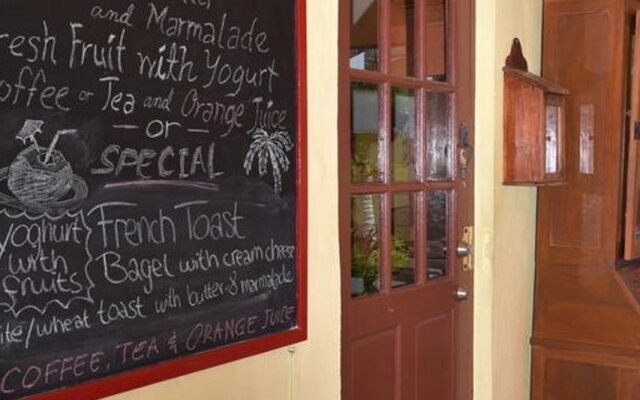 and Marmalade
Fresh Fruit with Yogurt
Coffee or Tea and Orange Juice
- or -
SPECIAL
yoghurt
with
fruits
French Toast
Bagel with cream cheese
ite/wheat toast with butter & marmalade
COFFEE, TEA & ORANGE JUICE